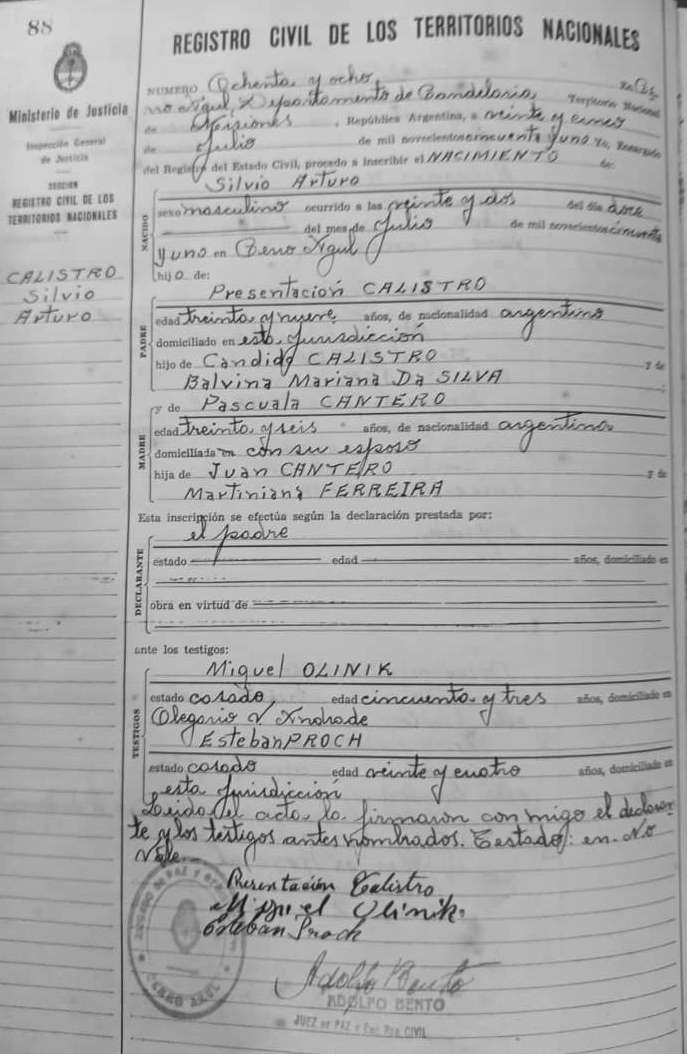 88
Ministerio de Justicia
Inspección General
de Justicia
SECCION
REGISTRO CIVIL DE LOS
TERRITORIOS NACIONALES
CALISTRO
Silvio
Arturo
REGISTRO CIVIL DE LOS TERRITORIOS NACIONALES
NUMERO Ochenta y ocho. En Ce-
rro Azul, Departamento de Candelaria, Territorio Nacional
de Misiones, República Argentina, a veinte y cinco
de Julio de mil novecientos cincuenta y uno Yo, Encargado
del Registro del Estado Civil, procedo a inscribir el NACIMIENTO de:
Silvio Arturo
NACIDO
sexo masculino ocurrido a las veinte y dos del día doce
del mes de Julio de mil novecientos cincuenta
y uno en Cerro Azul
hijo de:
Presentación CALISTRO
PADRE
edad treinta y nueve años, de nacionalidad argentino
domiciliado en esta jurisdicción
hijo de Candido CALISTRO y de
Balvina Mariana Da SILVA
y de Pascuala CANTERO
MADRE
edad treinta y seis años, de nacionalidad argentina
domiciliada en con su esposo
hija de Juan CANTERO y de
Martiniana FERREIRA
Esta inscripción se efectúa según la declaración prestada por:
el padre
DECLARANTE
estado edad años, domiciliado en
obra en virtud de
ante los testigos:
Miguel OLINIK
TESTIGOS
estado casado edad cincuenta y tres años, domiciliado en
Olegario V Andrade
Esteban PROCH
estado casado edad veinte y cuatro años, domiciliado en
esta jurisdicción
Leida el acta la firmaron conmigo el declaran-
te y los testigos antes nombrados. Testado: en. No
Vale.
Presentación Calistro
Miguel Olinik
Esteban Proch
JUZGADO DE PAZ Y
CERRO AZUL
Adolfo Bento
ADOLFO BENTO
JUEZ DE PAZ y CIVIL